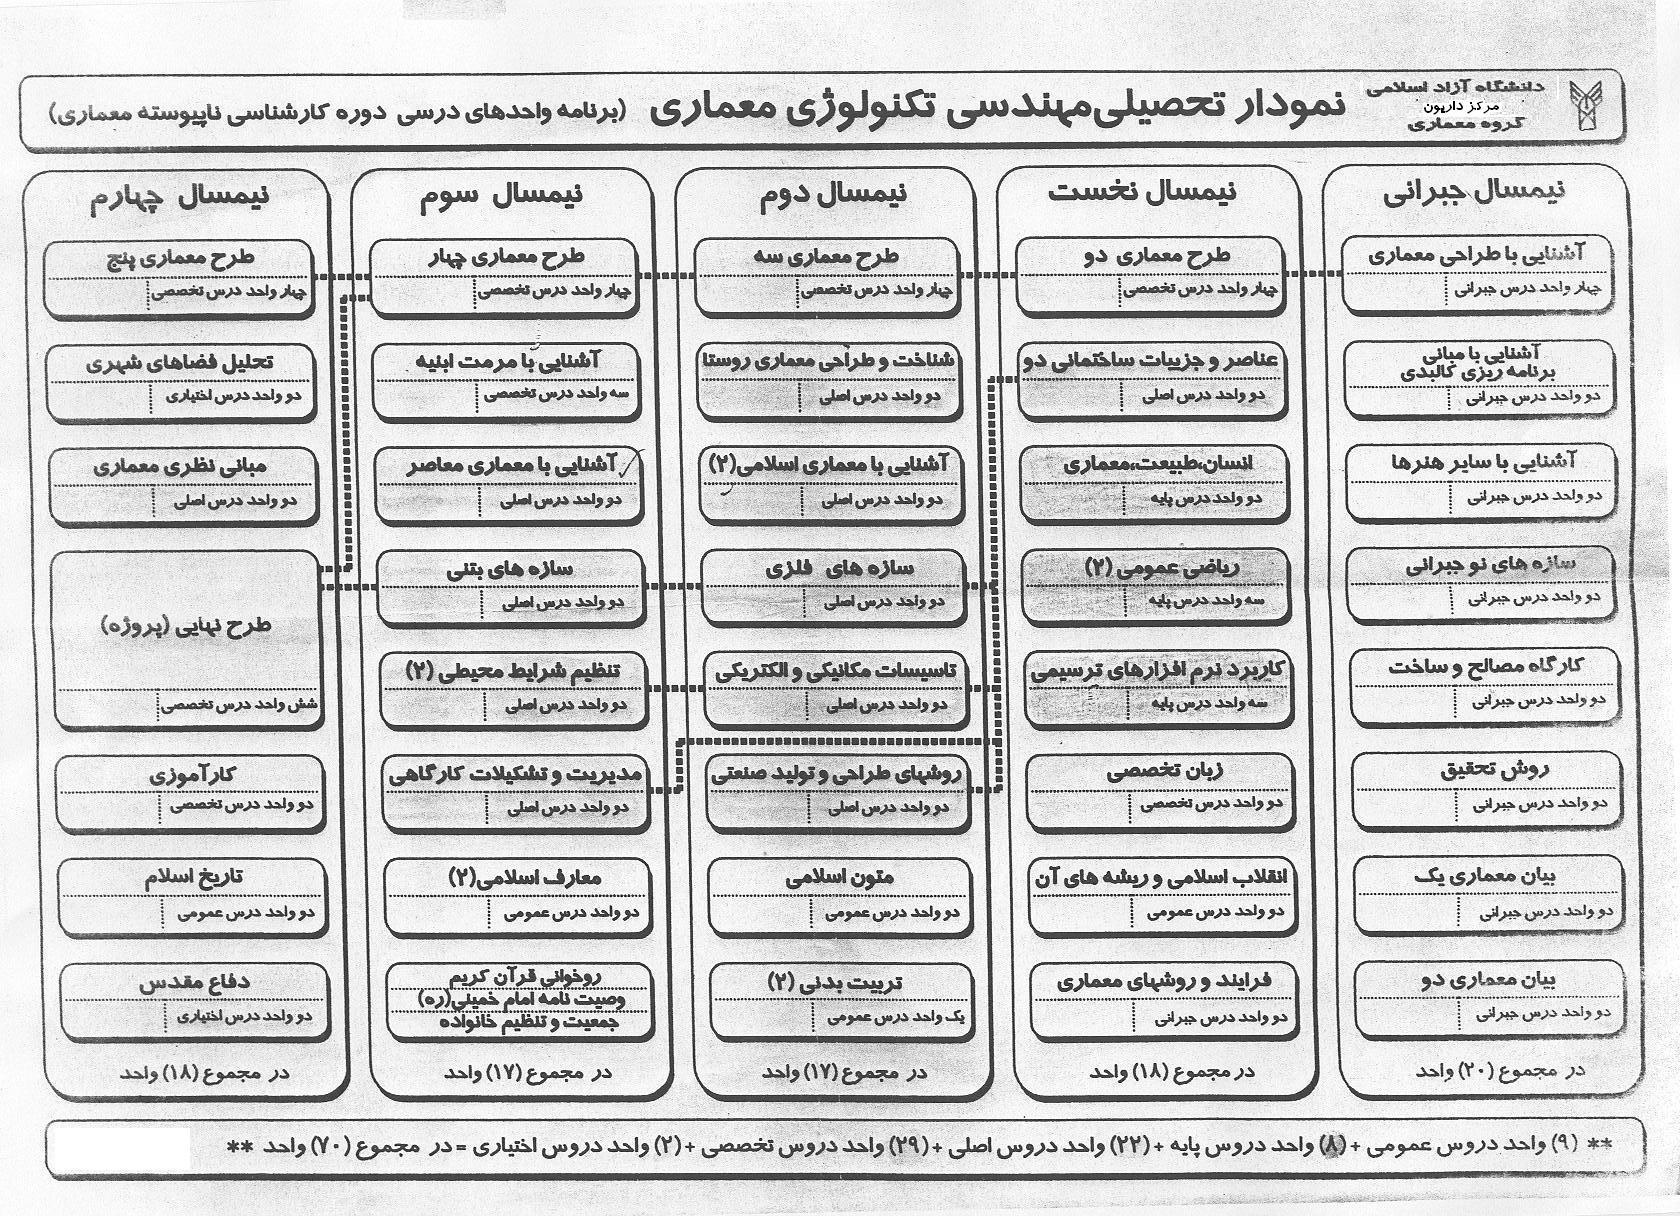 دانشگاه آزاد اسلامی
مرکز داریون
گروه معماری
نمودار تحصیلی مهندسی تکنولوژی معماری (برنامه واحدهای درسی دوره کارشناسی ناپیوسته معماری)
نیمسال جبرانی
آشنایی با طراحی معماری
چهار واحد درس جبرانی
آشنایی با مبانی
برنامه ریزی کالبدی
دو واحد درس جبرانی
آشنایی با سایر هنرها
دو واحد درس جبرانی
سازه های نو جبرانی
دو واحد درس جبرانی
کارگاه مصالح و ساخت
دو واحد درس جبرانی
روش تحقیق
دو واحد درس جبرانی
بیان معماری یک
دو واحد درس جبرانی
بیان معماری دو
دو واحد درس جبرانی
در مجموع (۲۰) واحد
نیمسال نخست
طرح معماری دو
چهار واحد درس تخصصی
عناصر و جزییات ساختمانی دو
دو واحد درس اصلی
انسان،طبیعت،معماری
دو واحد درس پایه
ریاضی عمومی (۲)
سه واحد درس پایه
کاربرد نرم افزارهای ترسیمی
سه واحد درس پایه
زبان تخصصی
دو واحد درس تخصصی
انقلاب اسلامی و ریشه های آن
دو واحد درس عمومی
فرایند و روشهای معماری
دو واحد درس جبرانی
در مجموع (۱۸) واحد
نیمسال دوم
طرح معماری سه
چهار واحد درس تخصصی
شناخت و طراحی معماری روستا
دو واحد درس اصلی
آشنایی با معماری اسلامی(۲)
دو واحد درس اصلی
سازه های فلزی
دو واحد درس اصلی
تاسیسات مکانیکی و الکتریکی
دو واحد درس اصلی
روشهای طراحی و تولید صنعتی
دو واحد درس اصلی
متون اسلامی
دو واحد درس عمومی
تربیت بدنی (۲)
یک واحد درس عمومی
در مجموع (۱۷) واحد
نیمسال سوم
طرح معماری چهار
چهار واحد درس تخصصی
آشنایی با مرمت ابنیه
سه واحد درس تخصصی
آشنایی با معماری معاصر
دو واحد درس اصلی
سازه های بتنی
دو واحد درس اصلی
تنظیم شرایط محیطی (۲)
دو واحد درس اصلی
مدیریت و تشکیلات کارگاهی
دو واحد درس اصلی
معارف اسلامی(۲)
دو واحد درس عمومی
روخوانی قرآن کریم
وصیت نامه امام خمینی(ره)
جمعیت و تنظیم خانواده
در مجموع (۱۷) واحد
نیمسال چهارم
طرح معماری پنج
چهار واحد درس تخصصی
تحلیل فضاهای شهری
دو واحد درس اختیاری
مبانی نظری معماری
دو واحد درس اصلی
طرح نهایی (پروژه)
شش واحد درس تخصصی
کارآموزی
دو واحد درس تخصصی
تاریخ اسلام
دو واحد درس عمومی
دفاع مقدس
دو واحد درس اختیاری
در مجموع (۱۸) واحد
** (۹) واحد دروس عمومی + (۸) واحد دروس پایه + (۲۲) واحد دروس اصلی + (۲۹) واحد دروس تخصصی + (۲) واحد دروس اختیاری = در مجموع (۷۰) واحد **